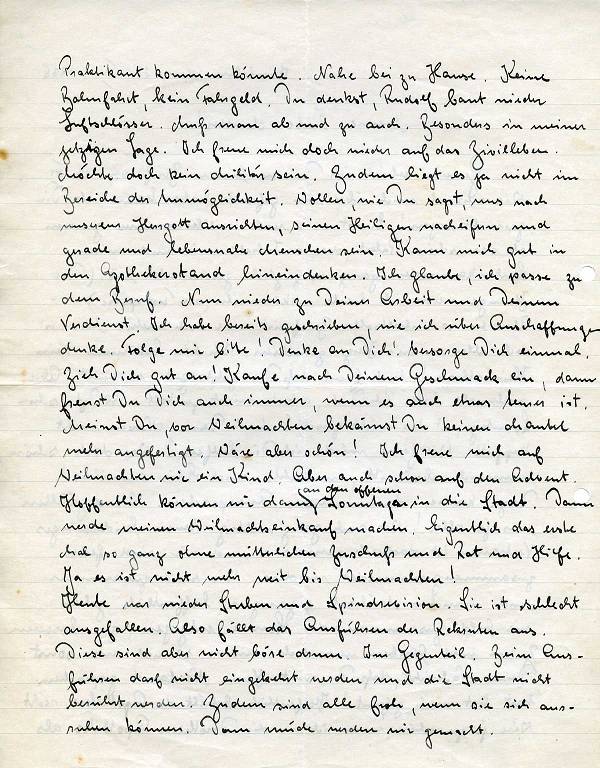 Praktikant kommen könnte. Nahe bei zu Hause. Keine
Bahnfahrt, kein Fahrgeld. Du denkst, Rudolf baut wieder
Luftschlösser. Muß man ab und zu auch. Besonders in meiner
jetzigen Lage. Ich freue mich doch wieder auf das Zivilleben.
Möchte doch kein Militär sein. Zudem liegt es ja nicht im
Bereiche der Unmöglichkeit. Wollen, wie Du sagst, uns nach
unserem Herrgott ausrichten, seinen Heiligen nacheifern und
gerade und lebensnahe Menschen sein. Kann mich gut in
den Apothekerstand hineindenken. Ich glaube, ich passe zu
dem Beruf. Nun wieder zu Deiner Arbeit und Deinem
Verdienst. Ich habe bereits geschrieben, wie ich über Anschaffungen
denke. Folge mir bitte! Denke an Dich! Versorge Dich einmal.
Zieh Dich gut an! Kaufe nach Deinem Geschmack ein, dann
freust Du Dich auch immer, wenn es auch etwas teurer ist.
Meinst Du, vor Weihnachten bekämst Du keinen Mantel
mehr angefertigt. Wäre aber schön! Ich freue mich auf
Weihnachten wie ein Kind. Aber auch schon auf den Advent.
Hoffentlich können wir dann an den offenen Sonntagen in die Stadt. Dann
werde meinen Weihnachtseinkauf machen. Eigentlich das erste
Mal so ganz ohne mütterlichen Zuschuß und Rat und Hilfe.
Ja es ist nicht mehr weit bis Weihnachten!
Heute war wieder Stuben und Spindrevision. Sie ist schlecht
ausgefallen. Also fällt das Ausführen der Rekruten aus.
Diese sind aber nicht böse drum. Im Gegenteil. Beim Aus-
führen darf nicht eingekehrt werden, und die Stadt nicht
berührt werden. Zudem sind alle froh, wenn sie sich aus-
ruhen können. Denn müde werden wir gemacht.